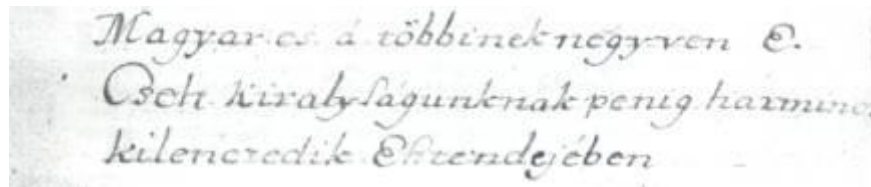 Magyar es á többinek négyven E.
Cseh kiralyságunknak penig harmincz
kilenczedik Ehtendejében